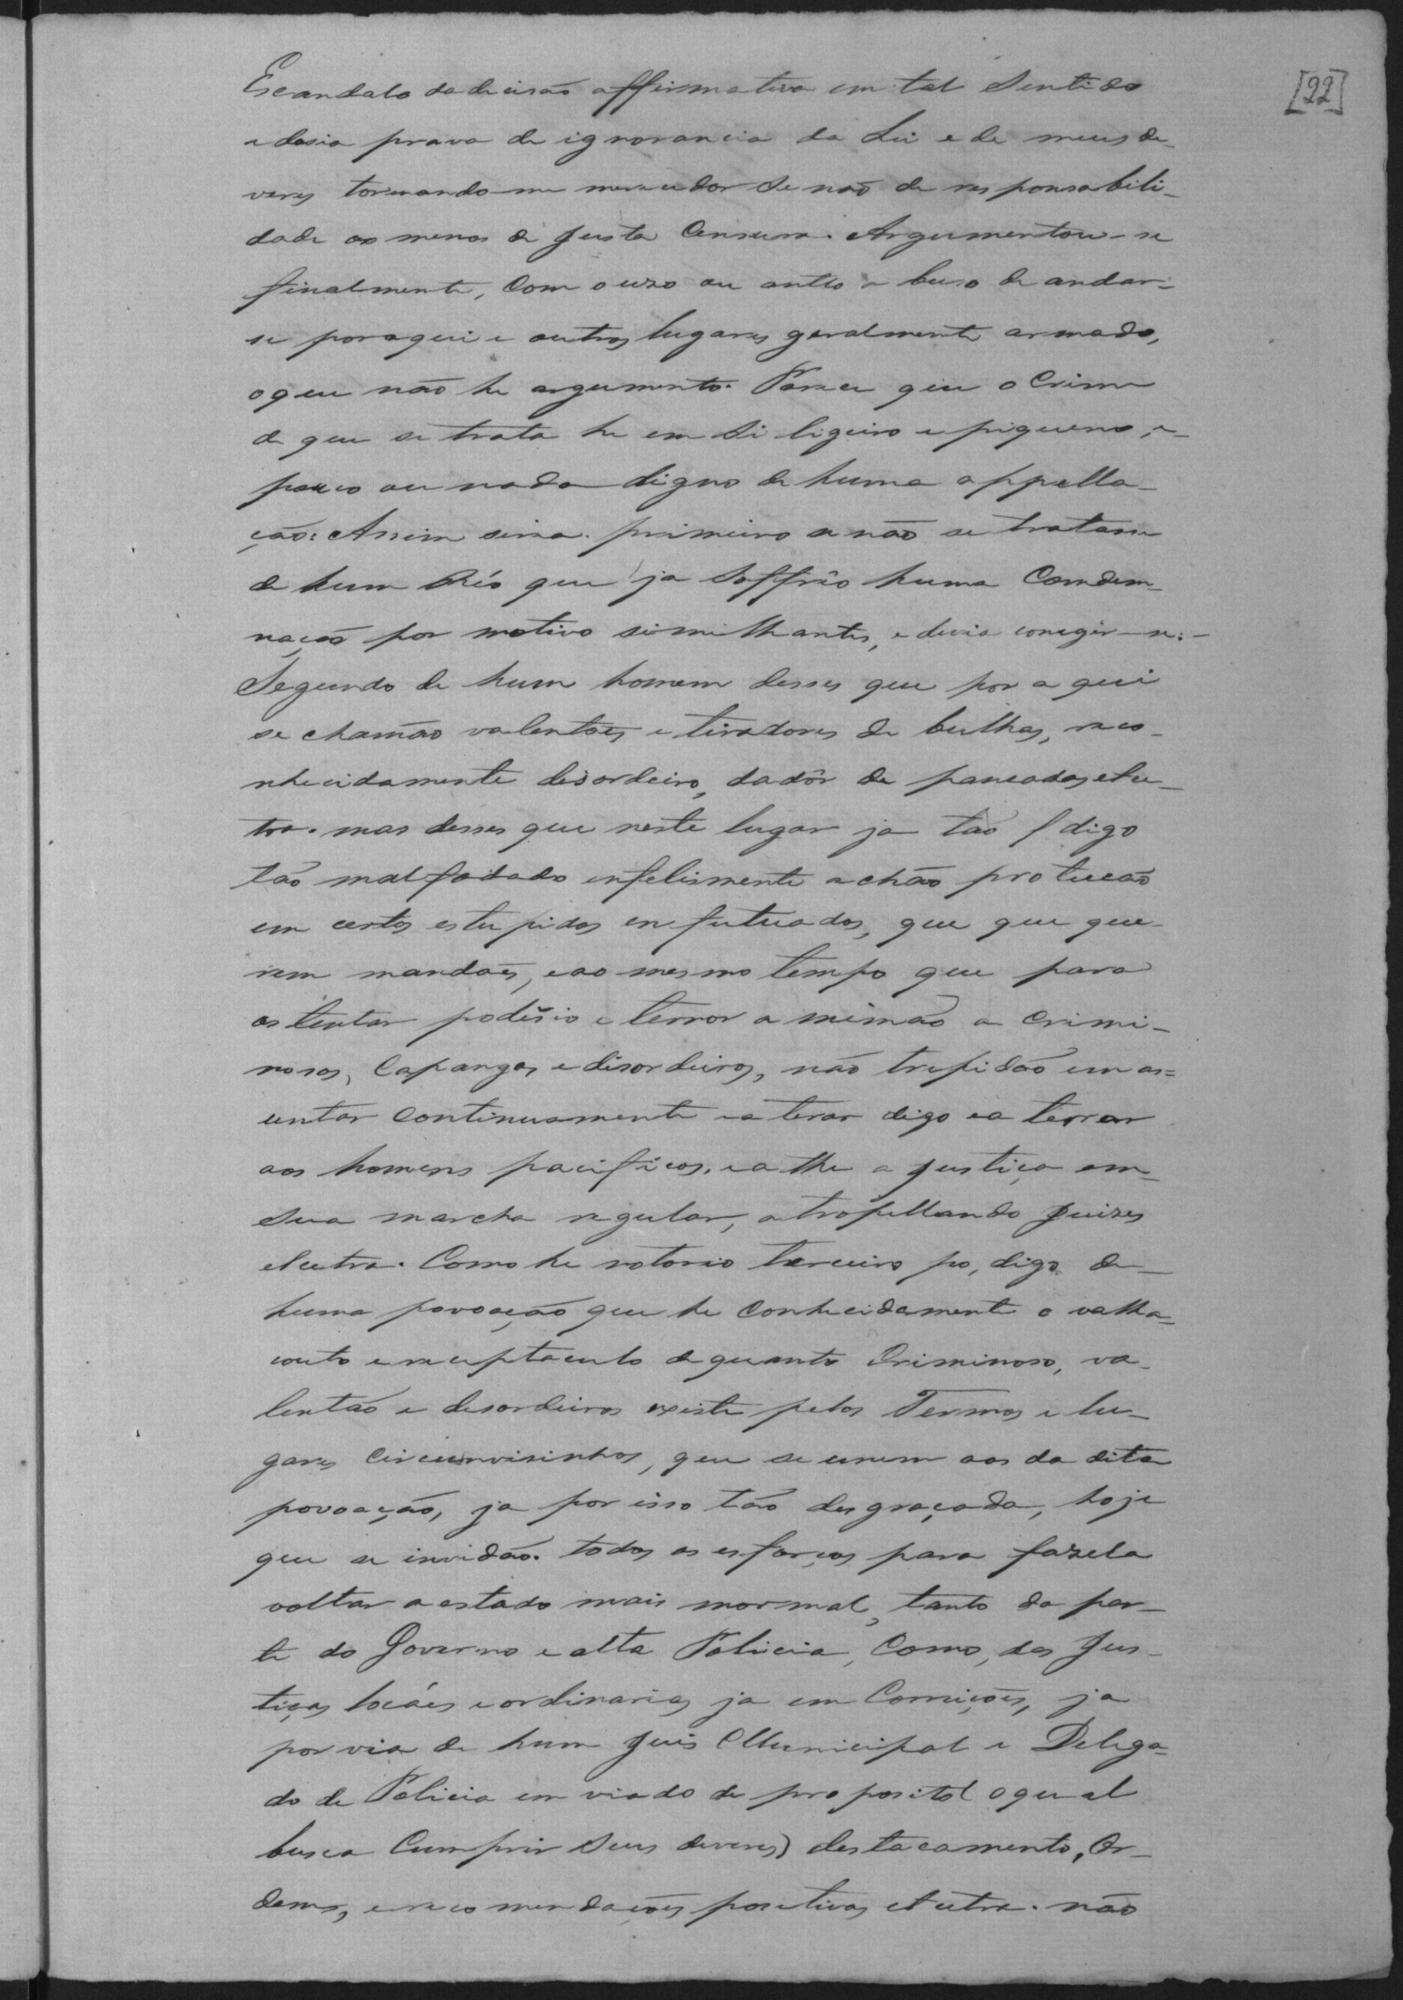 [22]
Escandalo da decisão affirmativa em tal Sentido
e daria prova de ignorancia da Lei e de meus de-
veres tornando-me merecedor se não de responsabili-
dade ao menos de justa Censura. Argumentou-se
finalmente, Com o uzo ou antes abuso de andar-
se por aqui e outros lugares geralmente armado,
o que não he argumento. Parece que o Crime
de que se trata he em Si ligeiro e piqueno, e
pouco ou nada digno de huma appella-
ção: Assim seria. primeiro se não se tratasse
de hum Réo que ja Soffrêo huma Condem-
nação por motivo similhantes, e devia corregir-se:-
Segundo de hum homem desses que por aqui
se chamão valentões e tiradores de bulhas, reco-
nhecidamente desordeiro, dadôr de pancadas etce-
tra. mas desses que neste lugar ja tão / digo
tão malfadado infelismente achão protecão
em certos estupidos enfatuados, que que que-
rem mandões, e ao mesmo tempo que para
ostentar podêrio e terror a mimão a Crimi-
nosos, Capangas e disordeiros, não trepidão em as-
sentar Continuamente e a terar digo e a terrar
aos homens pacificos, e a the a justiça em
Sua marcha regular, atropellando Juizes
etcetra. Como he notorio terceiro po, digo de
huma povoação que he Conhecidamente o valha-
couto e receptaculo de quanto Criminoso, va-
lentão e desordeiros existe pelos Termos e lu-
gares Circunvisinhos, que se unem aos da dita
povoação, ja por isso tão desgraçada, hoje
que se invidão todos os esforços para fazela
voltar a estado mais mormal, tanto da par-
te do Governo e alta Policia, Como, das Jus-
tiças locáes e ordinarias ja em Correições, ja
por via de hum Juis Municipal e Delega-
do de Policia em viado de proposito (o qual
busca Cumprir Seus deveres) destacamento, Or-
dems, e reco mendações positivas etcetra. não